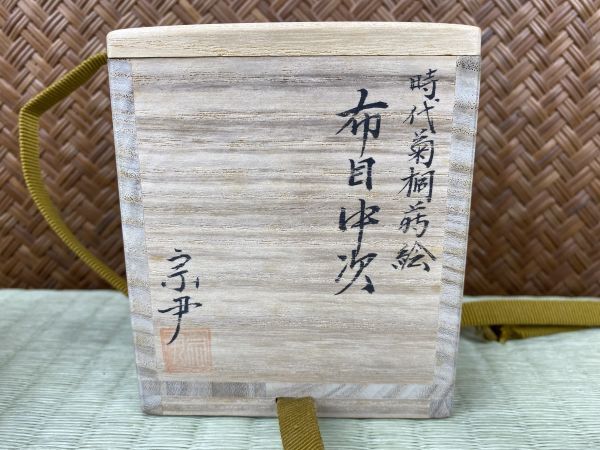 時代菊桐蒔絵
布目中次
宗尹